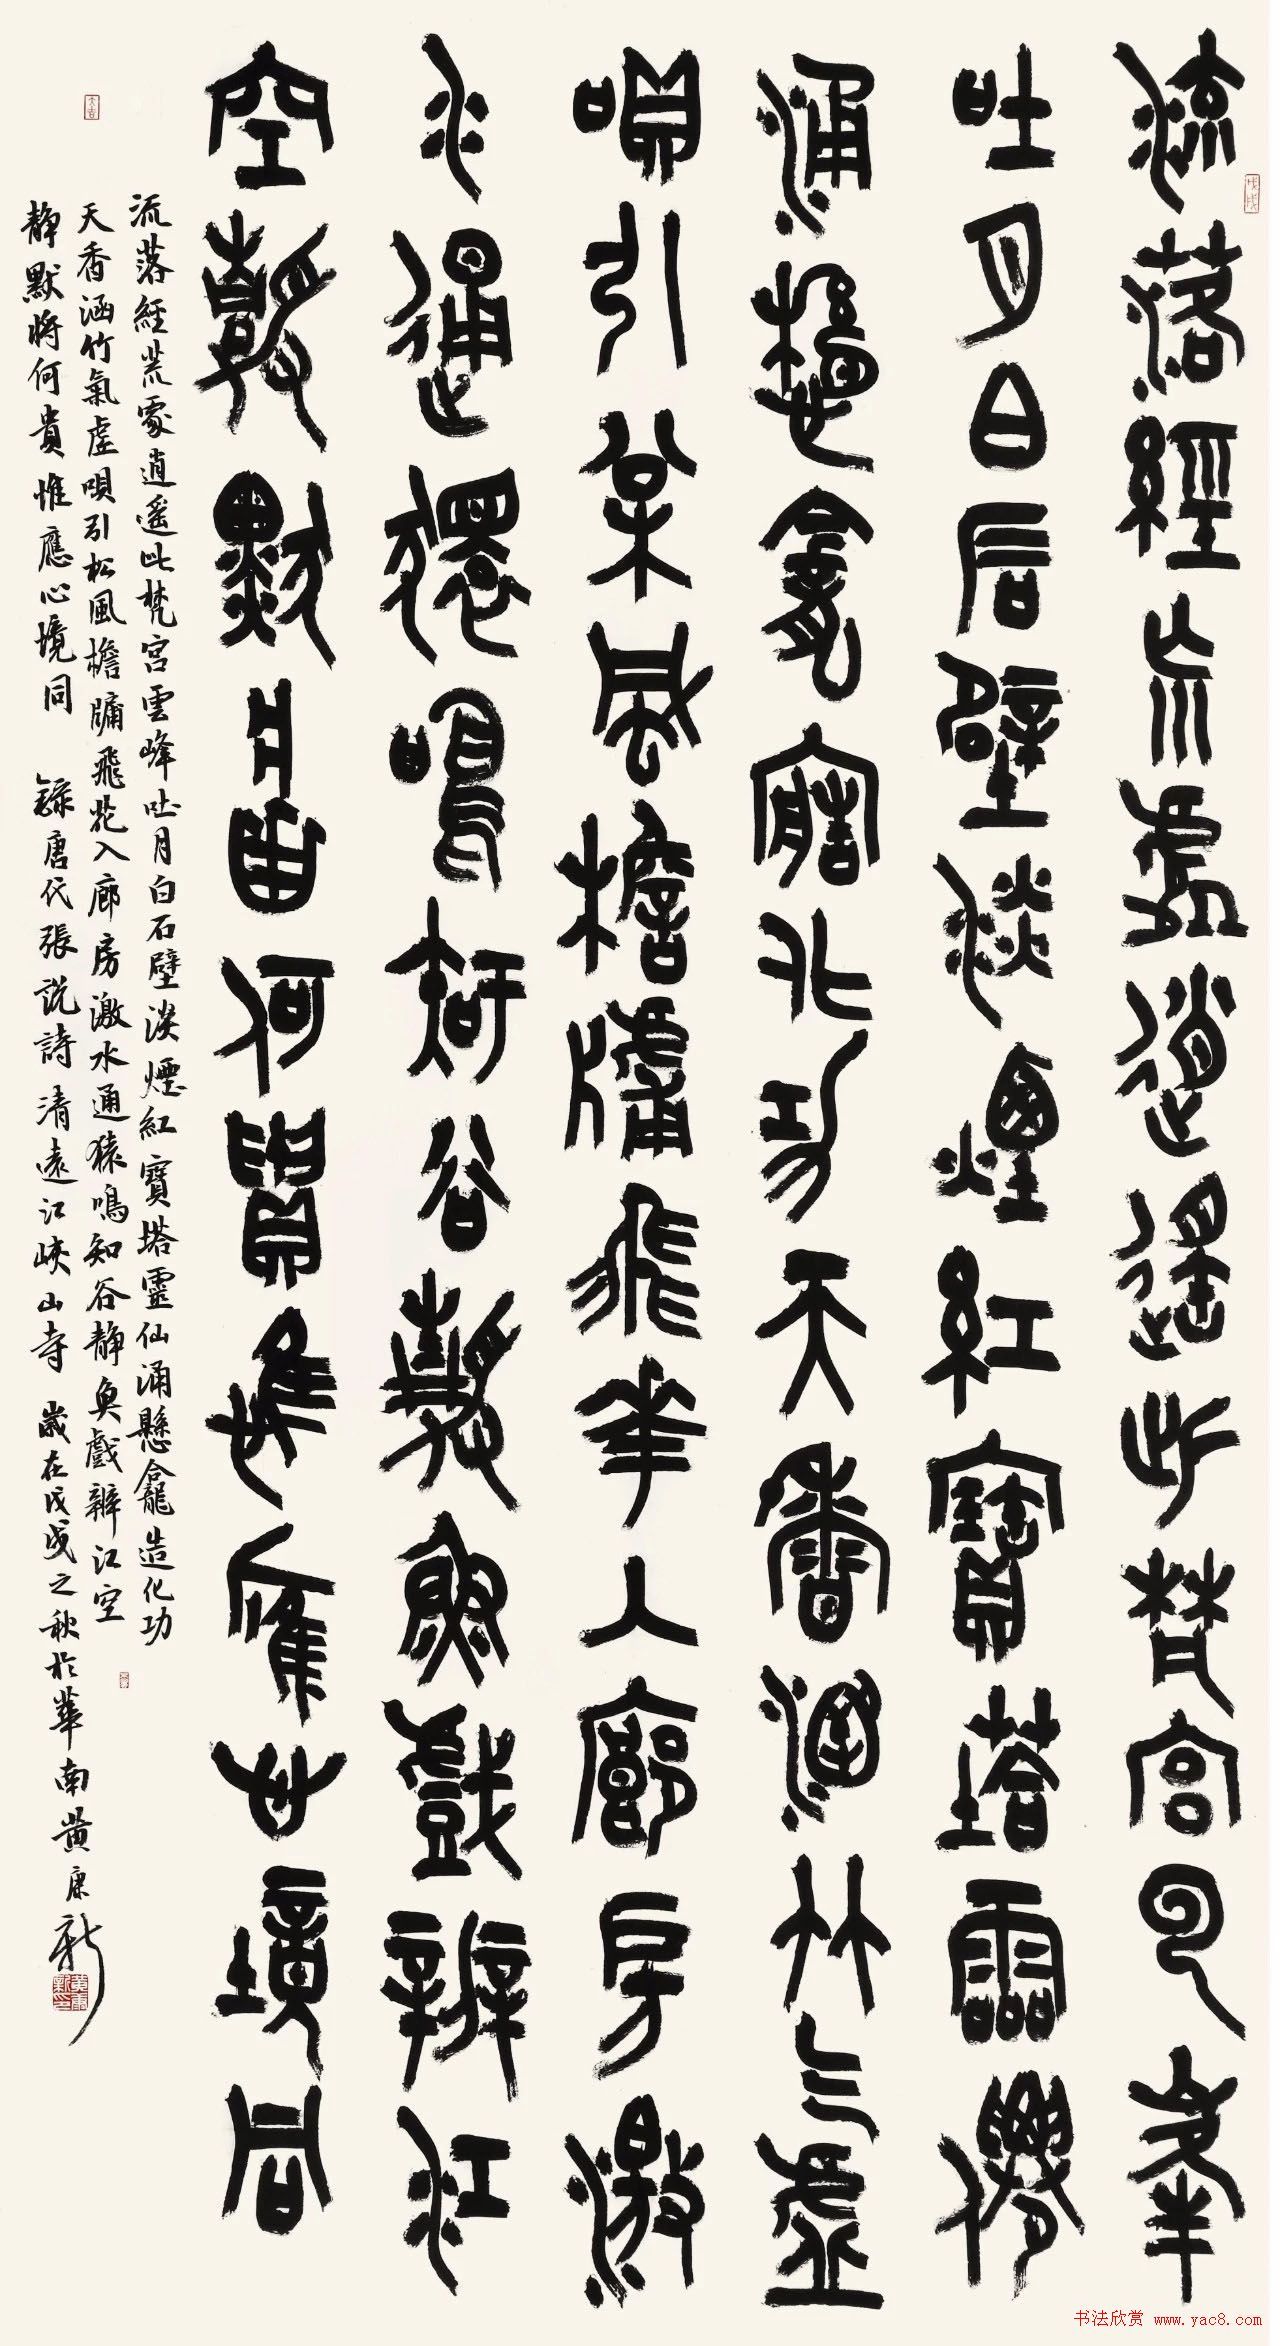 流落經荒處逍遙此梵宮雲峰
吐月白石壁淡煙紅寶塔靈仙
涌懸龕造化功天香涵竹氣虛
唄引松風檐牖飛花入廊房激
水通猿鳴知谷靜魚戲辨江
空靜默將何貴惟應心境同
流落經荒處逍遙此梵宮雲峰吐月白石壁淡煙紅寶塔靈仙涌懸龕造化功
天香涵竹氣虛唄引松風檐牖飛花入廊房激水通猿鳴知谷靜魚戲辨江空
靜默將何貴惟應心境同 錄唐代張說詩清遠江峽山寺 歲在戊戌之秋於華南黃康新
戊戌
书法欣赏 www.yac8.com